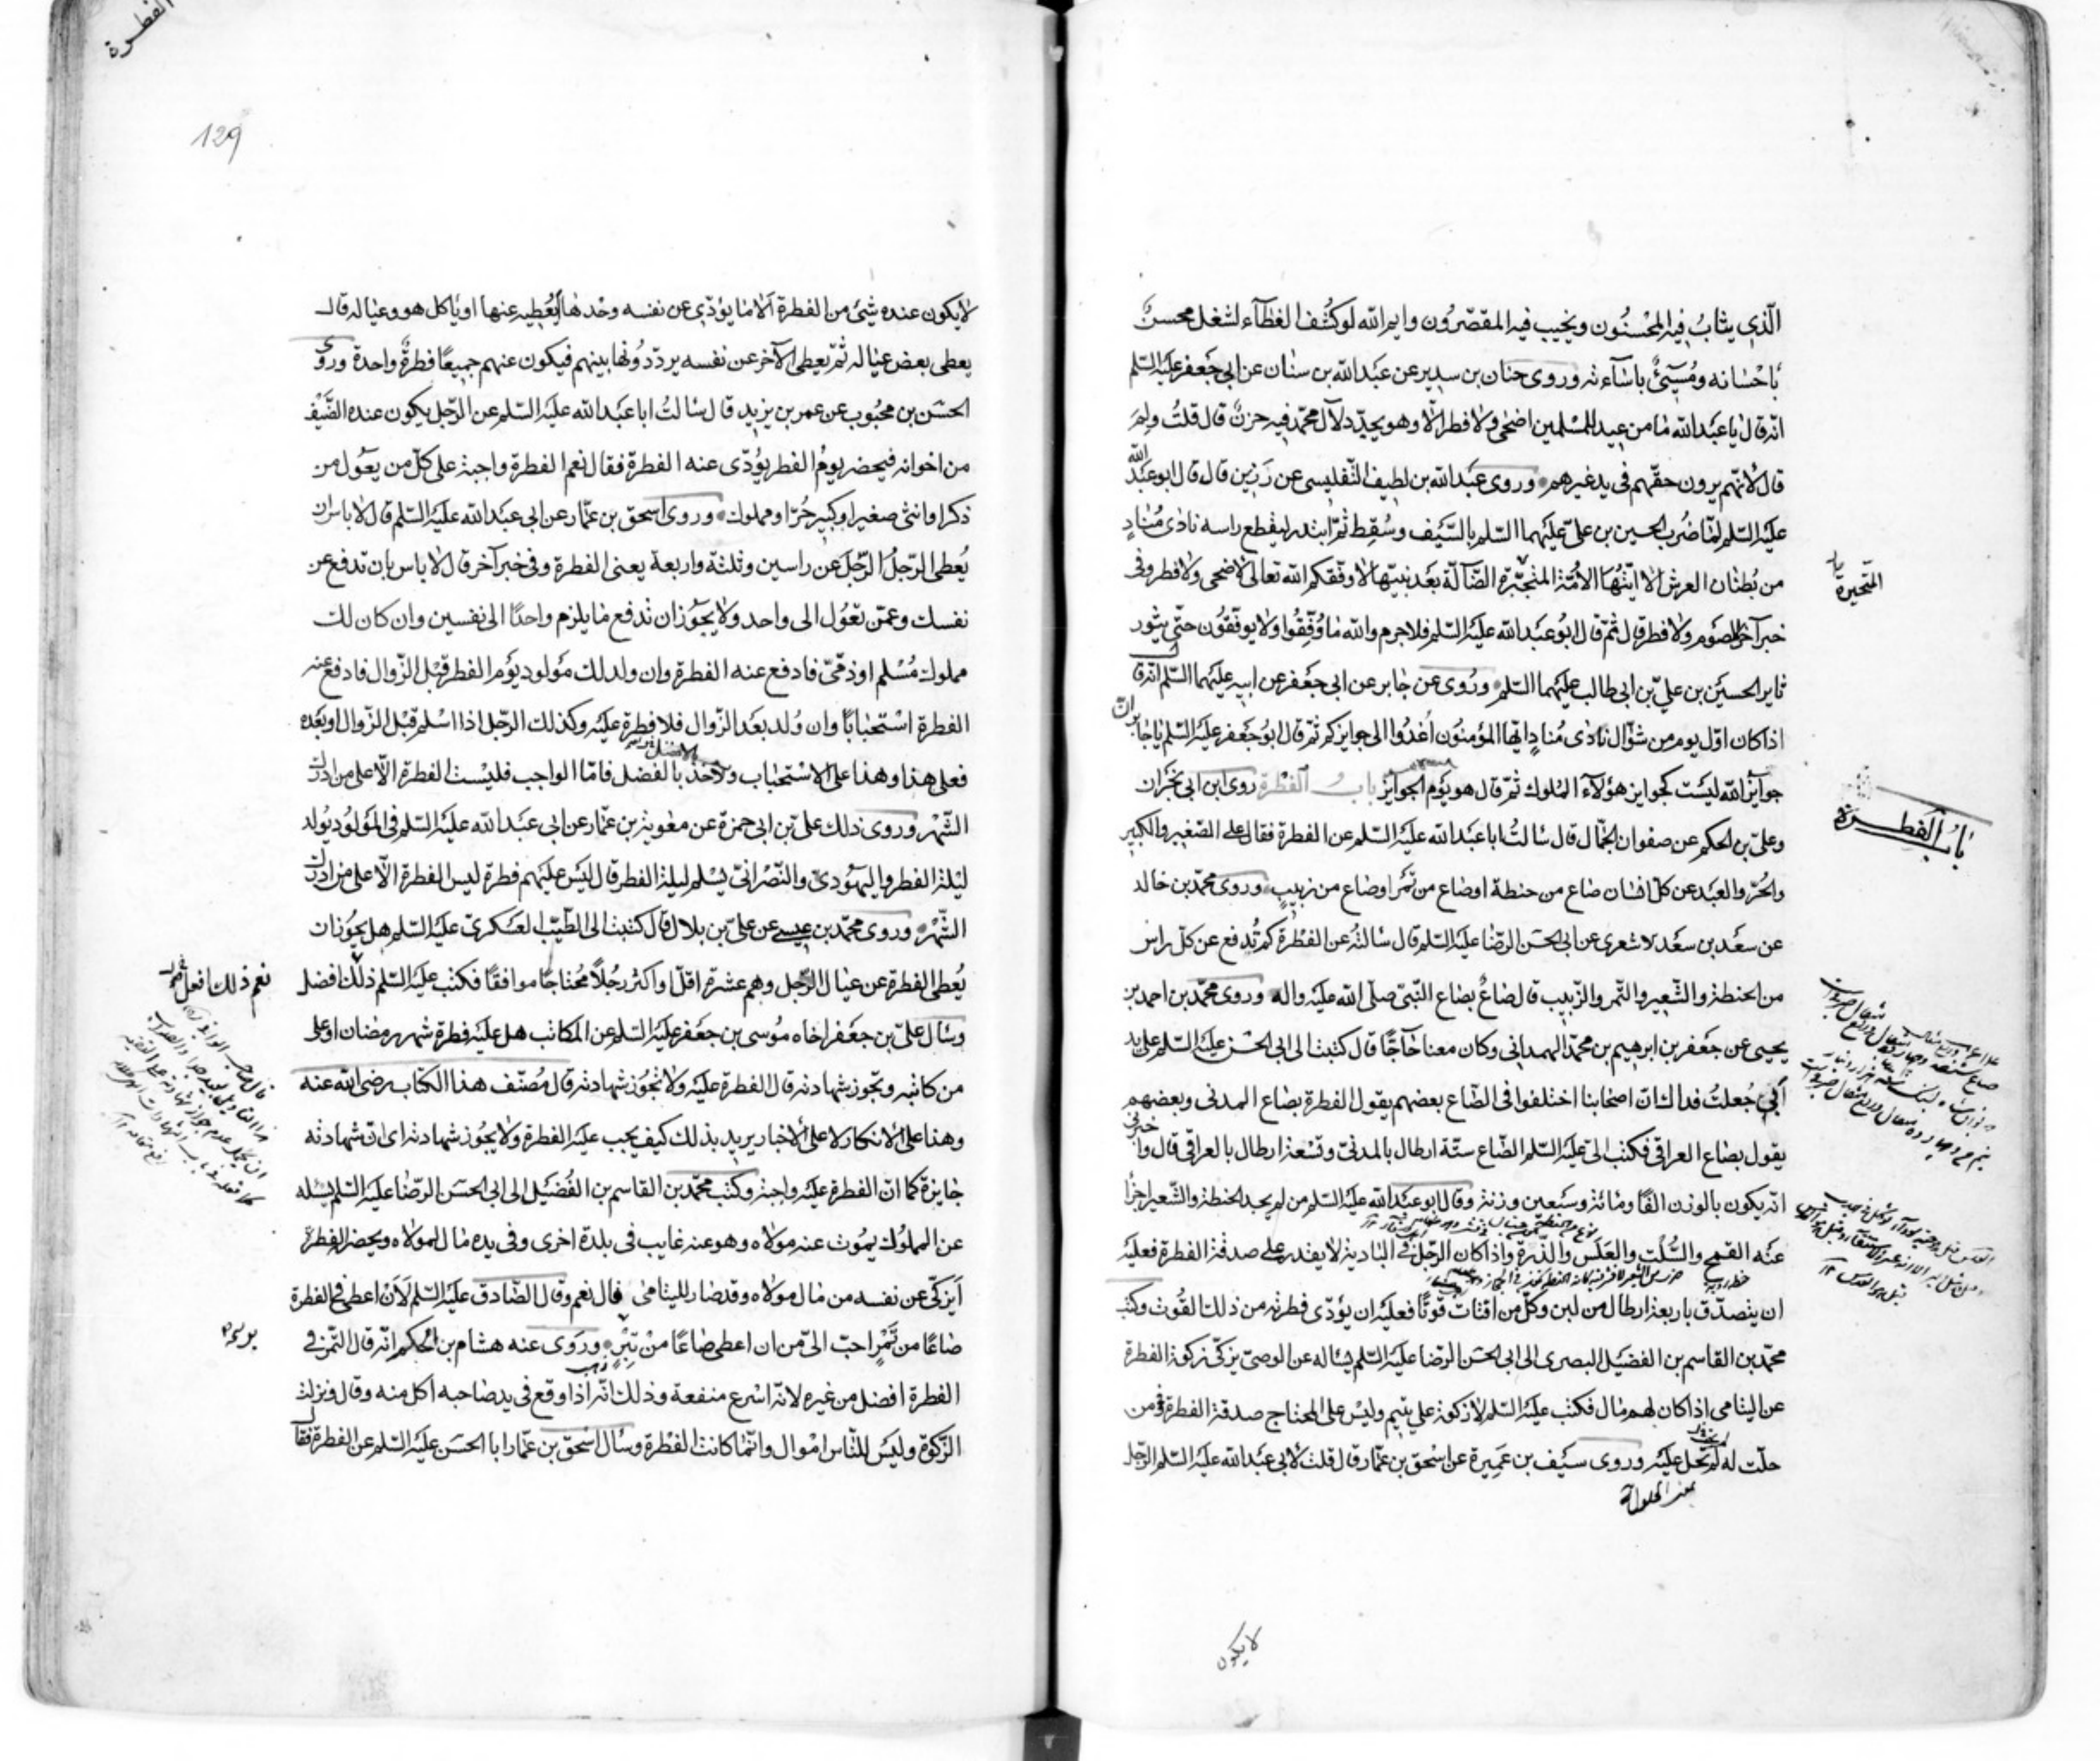 الّذي يثابُ فيه المحْسنُون ويخيب فيه المقصّرُون وايم الله لو كُشف الغطآء لشغل محسنٌ
بأحْسانه ومُسيئٌ باسآءته وروى حنان بن سدير عن عبَد الله بن سنان عن ابي جَعفر عليَه السّلم
انّه قال يا عبَد الله مٰا من عيد للمسْلمين اضحى ولا فطر الّا وهو يجدّد لآل محمّد فيه حزنٌ قال قلتُ ولِمَ
قال لأنّهم يرون حقّهم في يد غيرهم وروى عبَد الله بن لطيف التّفليسى عن رَزين قال قال ابو عبَد الله
عليَه السّلم لمّا ضُرب الحسين بن علىّ عليَهما السّلم بالسَّيف وسُقِط ثمّ ابتدر ليقطع راسه نادٰى مُنادٍ
من بُطنان العرش الا ايّتُها الامّة المتجبّرة الضّآلّة بعَد نبيّها لا وفّقكم الله تعالى لأضحى ولا فطر وفى
خبر آخر لصَوم ولا فطر قال ثمّ قال ابُو عبَد الله عليَه السّلم فلا جرم والله مٰا وُفّقُوا ولا يوفّقوُن حتّى يثور
ثاير الحسيَن بن عليّ بن ابى طالب عليَهما السّلم ورُوى عن جٰابر عن ابى جَعفر عن ابيه عليَهما السّلم انّه قال
اذا كان اوّل يوم من شوّال نادٰى مُنادٍ ايّها المؤمنوُن اُغدُوا الى جوايزكم ثمّ قال ابوُ جَعفر عليَه السّلم يا جٰابر انّ
جوآيز الله ليسَت كجوايز هؤلآء المُلوك ثمّ قال هو يوَم الجوآيز بابُ الفطْرة روى ابن ابى نجَران
وعلىّ بن الحكم عن صفوان الجمّال قال سٰالتُ ابا عبَد الله عليَه السّلم عن الفطرة فقال على الصّغير والكبير
والحُرّ والعبَد عن كلّ انسٰان صٰاع من حنطة او صٰاع من تمَر او صٰاع من زبيب وروى محمّد بن خالد
عن سعَد بن سعَد الاشعرى عن ابى الحسَن الرّضٰا عليَه السّلم قال سٰالتُه عن الفطْرة كم تُدفع عن كلّ راس
من الحنطة والشّعير والتّمر والزّبيب قال صٰاعٌ بصٰاع النّبىّ صلّى الله عليَه واله وروى محمّد بن احمد بن
يحيى عن جَعفر بن ابرهيم بن محمّد الهمدانى وكان معنا حٰآجّاً قال كتبت الى ابى الحسَن عليَه السّلم على يد
أبي جُعلتُ فداك انّ اصحٰابنا اختلفوا فى الصّاع بعضهم يقول الفطرة بصٰاع المدنى وبعضهم
يقول بصٰاع العراقى فكتب الىّ عليَه السّلم الصّاع ستّة ارطال بالمدنىّ وتسْعة ارطال بالعراقى قال واخبرنى
انّه يكون بالوزن الفًا ومٰائة وسبَعين وزنة وقال ابو عبَد الله عليَه السّلم من لم يجد الحنطة والشّعير اجزأ
عنَه القمح والسُّلت والعَلَس والذّرة واذا كان الرّجل في البٰادية لا يقدر على صدقة الفطرة فعليَه
ان يتصدّق باربعة ارطال من لبن وكلّ من اقتات قوتًا فعليَه ان يؤدّى فطرته من ذلك القُوت وكتب
محمّد بن القاسم بن الفضيَل البصرى الى ابى الحسَن الرّضٰا عليَه السّلم يسٰاله عن الوصىّ يزكّى زكوة الفطرة
عن اليتامى اذا كان لهم مٰال فكتب عليَه السّلم لا زكوة على يتيم وليسَ على المحتاج صدقة الفطرة ومن
حلّت له لم تحل عليَه وروى سيَف بن عَميرة عن اسْحق بن عمّار قال قلت لأبى عبَد الله عليَه السّلم الرّجل
لا يكون
المتحيرة
بابُ الفطـرة
الفطـرة
129
لا يكون عنده شئ من الفطرة الّا مٰا يؤدّى عن نفسه وحْدهٰا أيُعْطيه عنها او يأكل هو وعيٰاله قال
يعطى بعض عيٰاله ثمّ يعطى الآخر عن نفسه يردّدُونها بينهم فيكون عنهم جميعًا فطرةٌ واحدة وروى
الحسَن بن محبُوب عن عمر بن يزيد قال سٰالتُ ابا عبَد الله عليَه السّلم عن الرّجل يكون عنده الضّيَف
من اخوانه فيحضر يومُ الفطر يؤدّى عنه الفطرة فقال نعم الفطرة واجبة على كلّ من يعَول من
ذكر او انثى صغير او كبير حُرّ او مملوك وروى اسحق بن عمّار عن ابى عبَد الله عليَه السّلم قال لا باس ان
يُعطى الرّجلُ الرّجلَ عن راسين وثلثة واربعة يعنى الفطرة وفى خبر آخر قال لا باس بان تدفع عن
نفسك وعمّن تعُول الى واحد ولا يجوَز ان تدفع مٰا يلزم واحدًا الى نفسين وان كان لك
مملوك مُسْلم او ذمّىّ فادفع عنه الفطرة وان ولد لك موَلود يوَم الفطر قبْل الزّوال فادفع عنه
الفطرة اسْتحبٰابًا وان وُلد بعَد الزّوال فلا فطرة عليَه وكذلك الرّجل اذا اسْلم قبْل الزّوال او بعَده
فعلى هذا وهذا على الاسْتحبٰاب والاخذ بالافضل فامّا الواجب فليْست الفطرة الّا على من ادرك
الشّهْر وروى ذلك علىّ بن ابى حمزة عن معٰوية بن عمّار عن ابى عبَد الله عليَه السّلم فى الموَلوُد يوُلد
ليْلة الفطر واليهَودىّ والنّصْرانىّ يسْلم ليلة الفطر قال ليسَ عليَهم فطرة ليس الفطرة الّا على من ادرك
الشّهْر وروى محمّد بن عيسى عن علىّ بن بلال قال كتبت الى الطّيّب العسَكرىّ عليَه السّلم هل يجوُز ان
يُعطى الفطرة عن عيٰال الرّجل وهم عشرة اقلّ او اكثر رجُلاً مُحتاجًا موافقًا فكتب عليَه السّلم ذلك افضل
وسٰال علىّ بن جَعفر اخاه مُوسى بن جَعفر عليَه السّلم عن المكاتب هل عليَه فطرة شهر رمضٰان او على
من كاتبه وتجوز شهادته قال الفطرة عليَه ولا تجُوز شهادته قال مُصنّف هذا الكتاب رضى الله عنه
وهذا على الانكار لا على الأخبار يريد بذلك كيف يجب عليَه الفطرة ولا يجُوز شهادته اى انّ شهادته
جٰايزة كما انّ الفطرة عليَه واجبة وكتب محمّد بن القاسم بن الفُضيَل الى ابى الحسَن الرّضٰا عليَه السّلم يسئله
عن المملوُك يموُت عنه موَلاه وهو عنه غايب فى بلدة اخرى وفى يده مٰال لموَلاه ويحضر الفطرة
أيزكّى عن نفسه من مٰال موَلاه وقد صٰار لليتامٰى قال نعم وقال الصّادق عليَه السّلم لَأن اعطى فى الفطرة
صٰاعًا من تَمْرٍ احبّ الىّ من ان اعطى صٰاعًا منْ تِبْرٍ وروَى عنه هشام بن الحكم انّه قال التّمر فى
الفطرة افضل من غيره لانّه اسْرع منفعة وذلك انّه اذا وقع فى يد صٰاحبه اكل منه وقال ونزلت
الزّكوة وليَس للنّاس امْوال وانّما كانت الفطْرة وسٰال اسْحق بن عمّار ابا الحسَن عليَه السّلم عن الفطرة فقال
نعم ذلك افضل